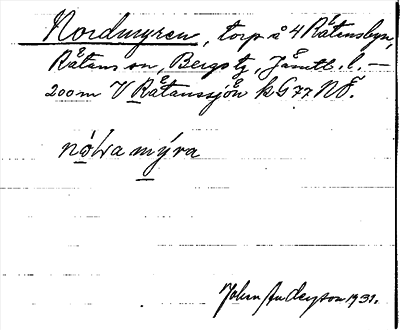 Nordmyren, torp å 4 Råtansbyn,
Råtans sn, Bergs tg, Jämtl. l. —
200 m V Råtanssjön k G 77 NÖ.
nòḷa mýra
John Anderson 1931.